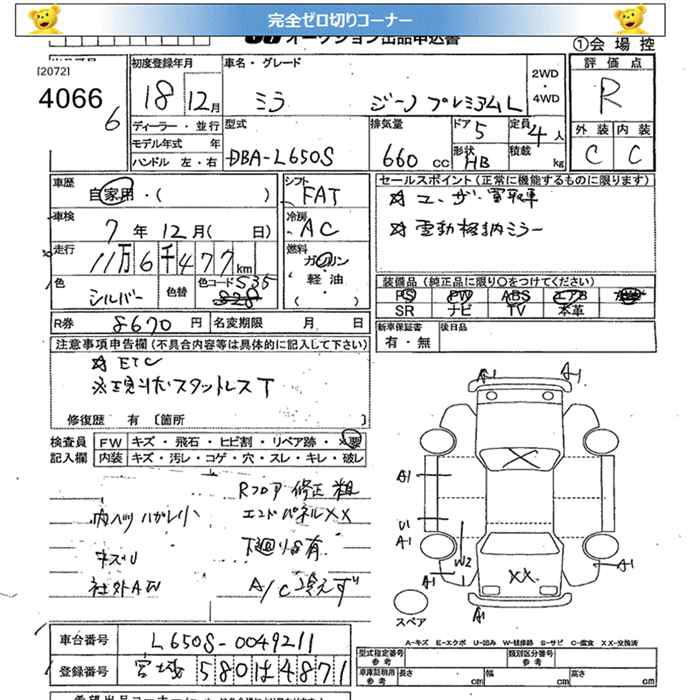 完全ゼロ切りコーナー
オークション出品申込書
①会場控
[2072]
4066
6
初度登録年月
18 12月
車名・グレード
ミラ ジーノ プレミアムL
2WD
・
4WD
評価点
R
外装 内装
C C
ディーラー・並行
モデル年式 年
ハンドル 左・右
型式
DBA-L650S
排気量
660 cc
ドア 5
形状 HB
定員 4人
積載 kg
車歴
自家用・( )
シフト
FAT
車検
7年12月( 日)
冷房
AC
走行
11万6千477km
燃料
ガソリン
(軽油・)
色
シルバー
色替
色コード S35
R券 8670円 名変期限 月 日
セールスポイント(正常に機能するものに限ります)
☆ユーザー買取車
☆電動格納ミラー
装備品(純正品に限り○をつけてください)
PS PW ABS エアB
SR ナビ TV 本革
新車保証書 後日品
有・無
注意事項申告欄(不具合内容等は具体的に記入して下さい)
☆ETC
スタットレスT
修復歴 有 〔箇所 〕
検査員 FW キズ・飛石・ヒビ割・リペア跡・×要
記入欄 内装 キズ・汚レ・コゲ・穴・スレ・キレ・破レ
Rフロア修正 粗
内ハツリハガレ小 エンドパネルXX
キズU 下廻りS有
社外AW A/C冷えず
A1 A1
A1
U1
A1
W2
A1
A1
XX
A1
スペア
A-キズ E-エクボ U-凹み W-補修跡 S-サビ C-腐食 XX-交換済
車台番号 L650S-0049211
登録番号 宮城 580 は 4871
型式指定番号 参考
類別区分番号 参考
車庫証明用 参考 長さ cm 幅 cm 高さ cm